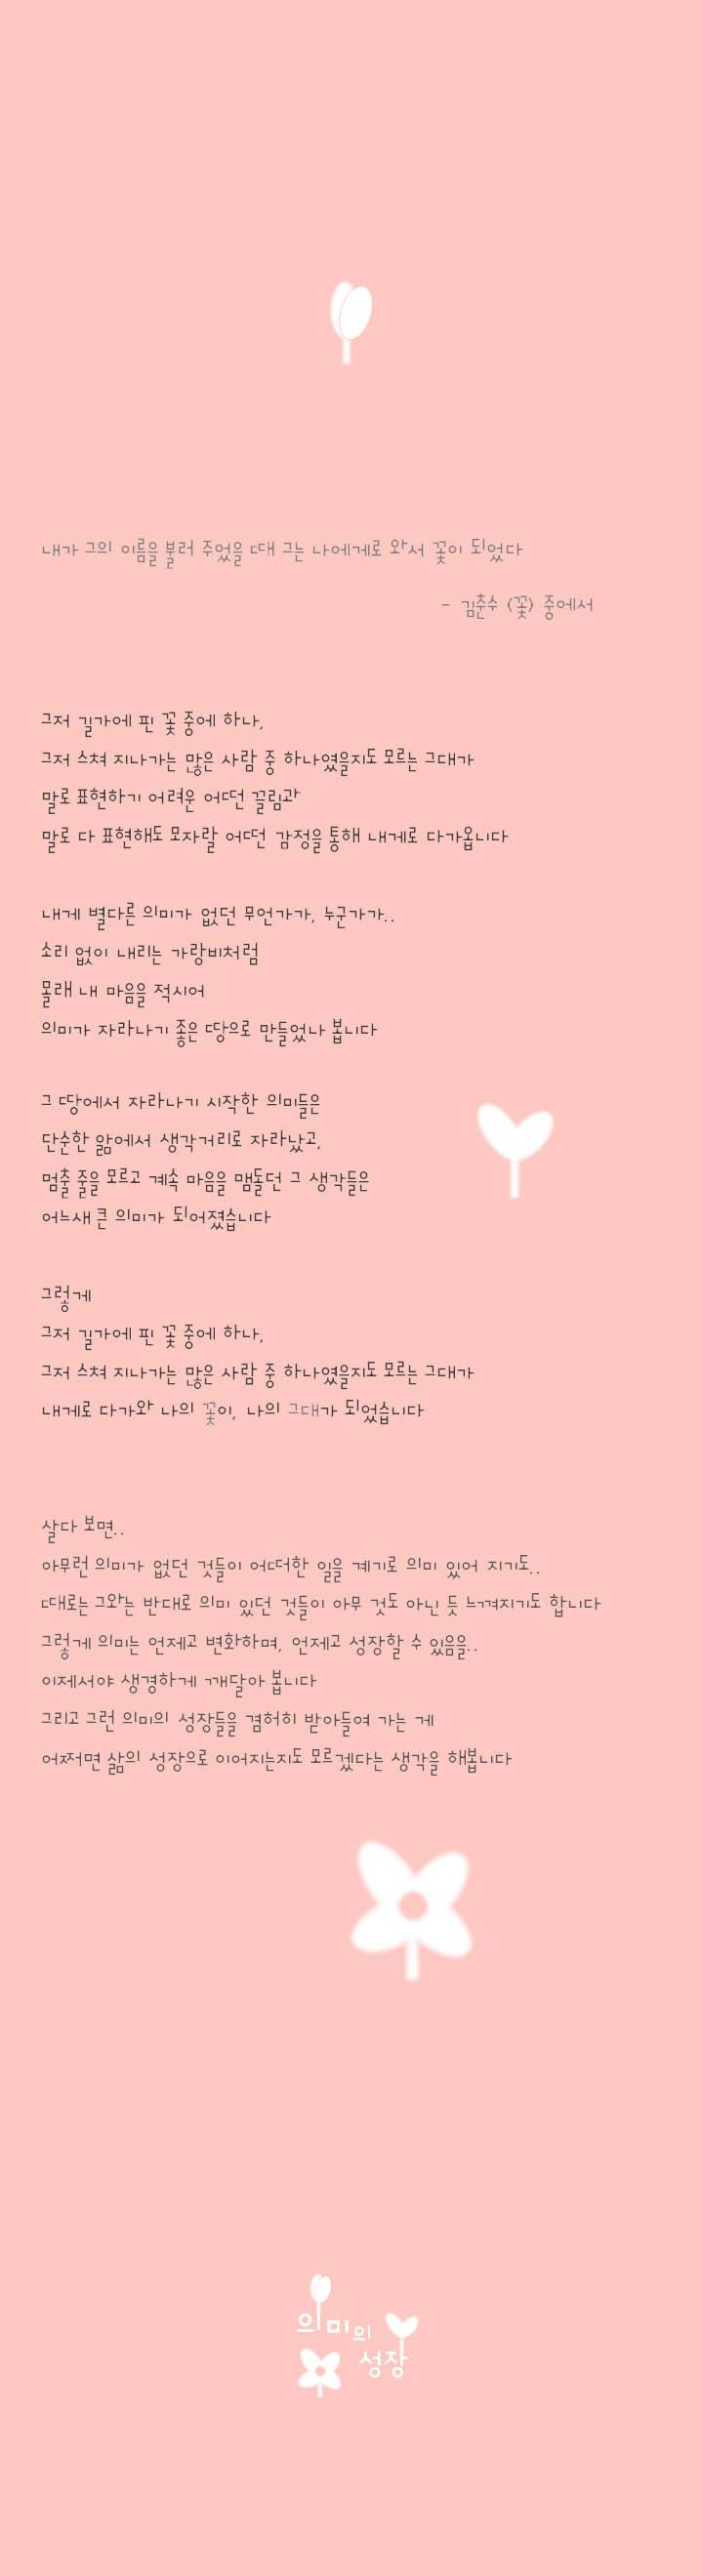 내가 그의 이름을 불러 주었을 때 그는 나에게로 와서 꽃이 되었다
- 김춘수 <꽃> 중에서
그저 길가에 핀 꽃 중에 하나,
그저 스쳐 지나가는 많은 사람 중 하나였을지도 모르는 그대가
말로 표현하기 어려운 어떤 끌림과
말로 다 표현해도 모자랄 어떤 감정을 통해 내게로 다가옵니다
내게 별다른 의미가 없던 무언가가, 누군가가..
소리 없이 내리는 가랑비처럼
몰래 내 마음을 적시어
의미가 자라나기 좋은 땅으로 만들었나 봅니다
그 땅에서 자라나기 시작한 의미들은
단순한 앎에서 생각거리로 자라났고,
멈출 줄을 모르고 계속 마음을 맴돌던 그 생각들은
어느새 큰 의미가 되어졌습니다
그렇게
그저 길가에 핀 꽃 중에 하나,
그저 스쳐 지나가는 많은 사람 중 하나였을지도 모르는 그대가
내게로 다가와 나의 꽃이, 나의 그대가 되었습니다
살다 보면..
아무런 의미가 없던 것들이 어떠한 일을 계기로 의미 있어 지기도..
때로는 그와는 반대로 의미 있던 것들이 아무 것도 아닌 듯 느껴지기도 합니다
그렇게 의미는 언제고 변화하며, 언제고 성장할 수 있음을..
이제서야 생경하게 깨달아 봅니다
그리고 그런 의미의 성장들을 겸허히 받아들여 가는 게
어쩌면 삶의 성장으로 이어지는지도 모르겠다는 생각을 해봅니다
의미의
성장